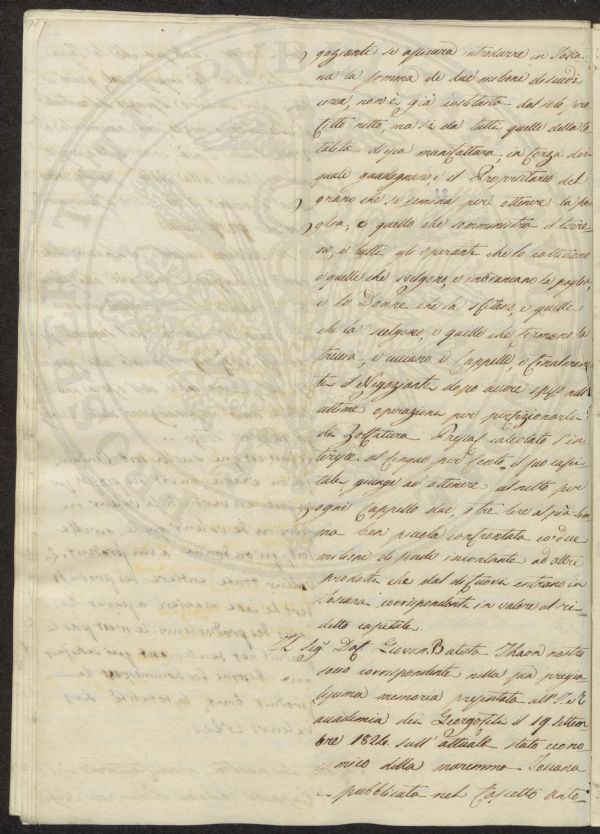 goziante si assicura introdurre in Tosca-
na la somma di due milioni di scudi
circa, non è già costituita dal solo pro
fitto netto, ma si da tutte quelle della to
talità di sua manifattura, in forza di
quale guadagnano, e il Proprietario del
grano che si semina per ottenere la pa
glia, e quello che somministra il terre
no, e tutti gli operanti che lo coltivano
e quelli che scelgono, e imbiancano la paglia,
e le Donne che la sfilano, e quelle
che la scelgono, e quelle che formano la
treccia, e cuciano i Cappelli, e finalmen
te il Negoziante dopo avere speso nell'
ultime operazioni per perfezionarli
da Zolfatura Pressa calcolato l'in
teresse al cinque per Cento il suo capi
tale giunge ad ottenere al netto per
ogni Cappello due, o tre lire al più som
ma ben piccola confrontata coi due
milioni di scudi incontante ad altri
prodotti che dal di fuori entrano in
Toscana corrispondenti in valore al ri
detto capitale.
Il Sig. Dot. Giovan Batista Thaon nostro
socio corrispondente nella sua pregia
tissima memoria presentata all' I. e R.
accademia dei Georgofili il 19 settem
bre 1824 sull' attuale stato econo
mico della maremma Toscana
pubblicata nel Cascetto anto-